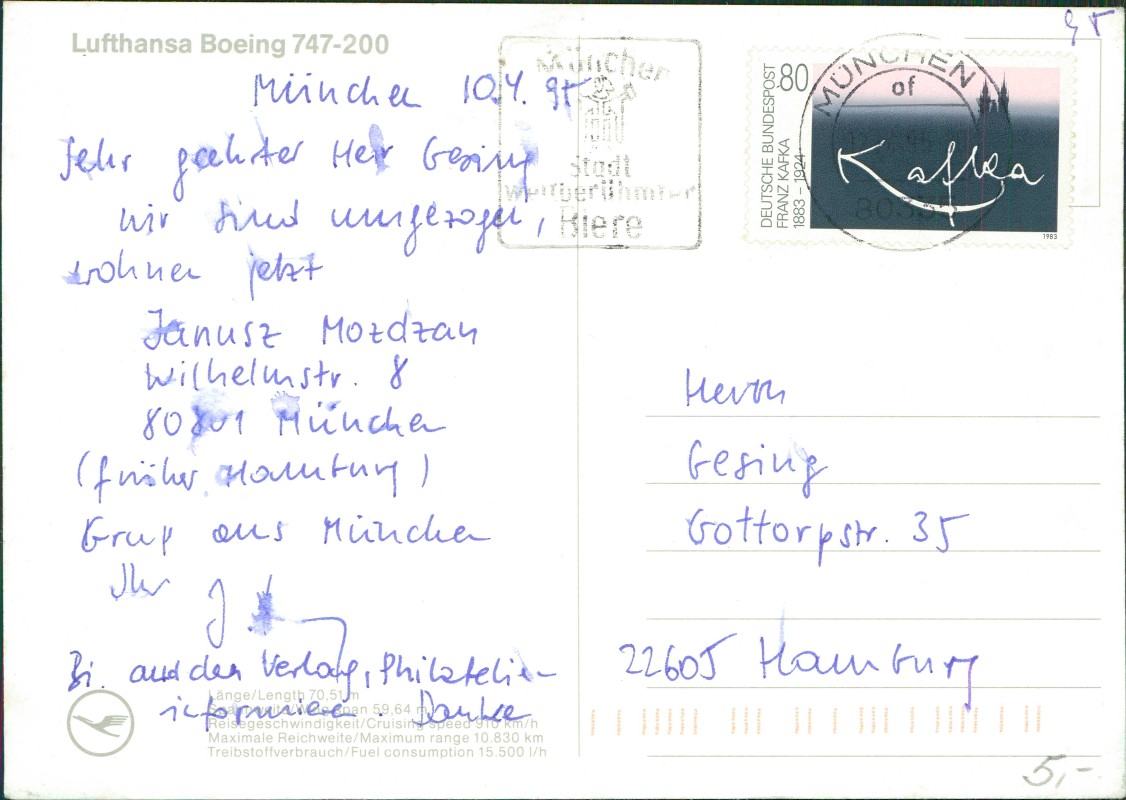 Lufthansa Boeing 747-200
München 10.4.95
Sehr geehrter Herr Gesing
wir sind umgezogen,
wohnen jetzt
Janusz Mozdzan
Wilhelmstr. 8
80801 München
(früher Hamburg)
Gruß aus München
Ihr
Bi. auch den Verlag, Philatelie
informieren. Danke
Länge/Length 70,51 m
Spannweite/Wing span 59,64 m
Reisegeschwindigkeit/Cruising speed 910 km/h
Maximale Reichweite/Maximum range 10.830 km
Treibstoffverbrauch/Fuel consumption 15.500 l/h
München
Stadt
weltberühmter
Biere
95
DEUTSCHE BUNDESPOST 80
FRANZ KAFKA
1883 – 1924
Kafka
1983
MÜNCHEN
of
Herrn
Gesing
Gottorpstr. 35
22605 Hamburg
5,-